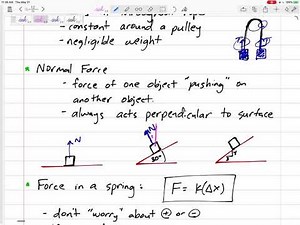 - constant around a pulley
- negligible weight
* Normal Force
- force of one object "pushing" on
another object.
- always acts perpendicular to surface
N
N
30°
* Force in a spring: F = k(Δx)
- don't "worry" about + or -